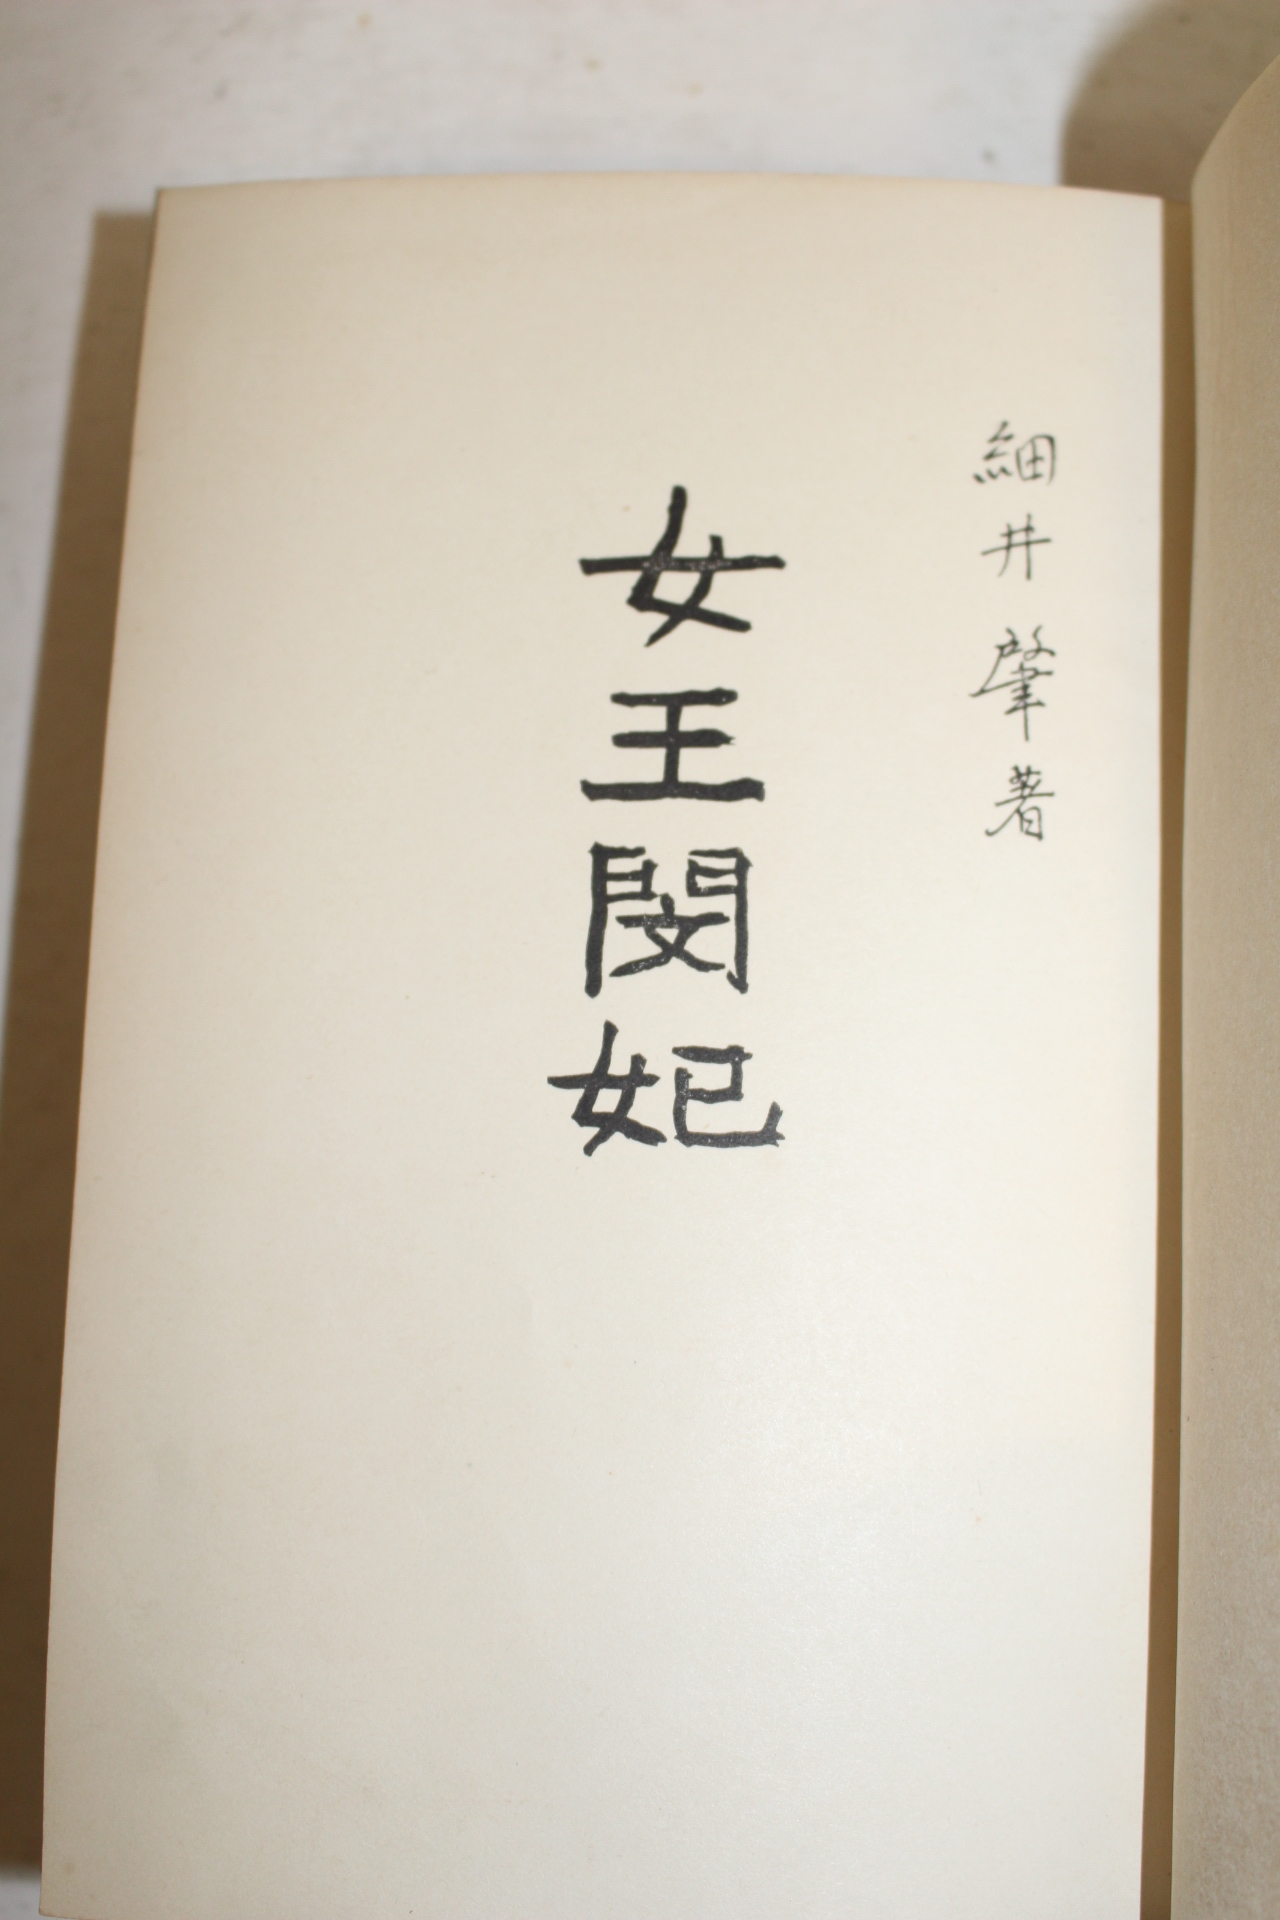 細井肇著
女王閔妃